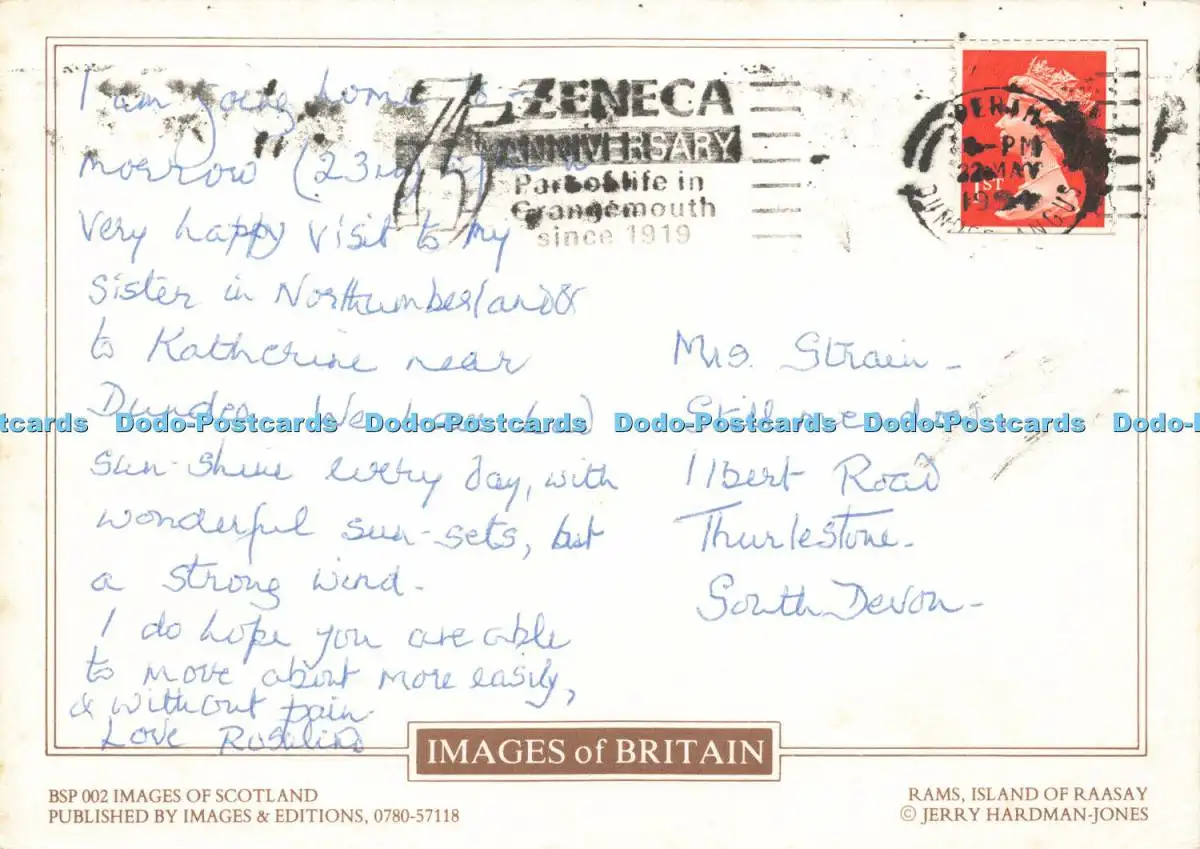 I am going home to-
morrow (23rd) after a
very happy visit to my
sister in Northumberland &
to Katherine near
Dundee. We have had
sun-shine every day, with
wonderful sun-sets, but
a strong wind.
I do hope you are able
to move about more easily,
& without pain.
Love Rosalind
75 ZENECA
ANNIVERSARY
Part of life in
Grangemouth
since 1919
PERTH
PM
22 MAY
DUNDEE ANGUS
1ST
Mrs. Strain -
11 Bert Road
Thurlestone.
South Devon -
Dodo-Postcards Dodo-Postcards Dodo-Postcards Dodo-Postcards
IMAGES of BRITAIN
BSP 002 IMAGES OF SCOTLAND
PUBLISHED BY IMAGES & EDITIONS, 0780-57118
RAMS, ISLAND OF RAASAY
© JERRY HARDMAN-JONES